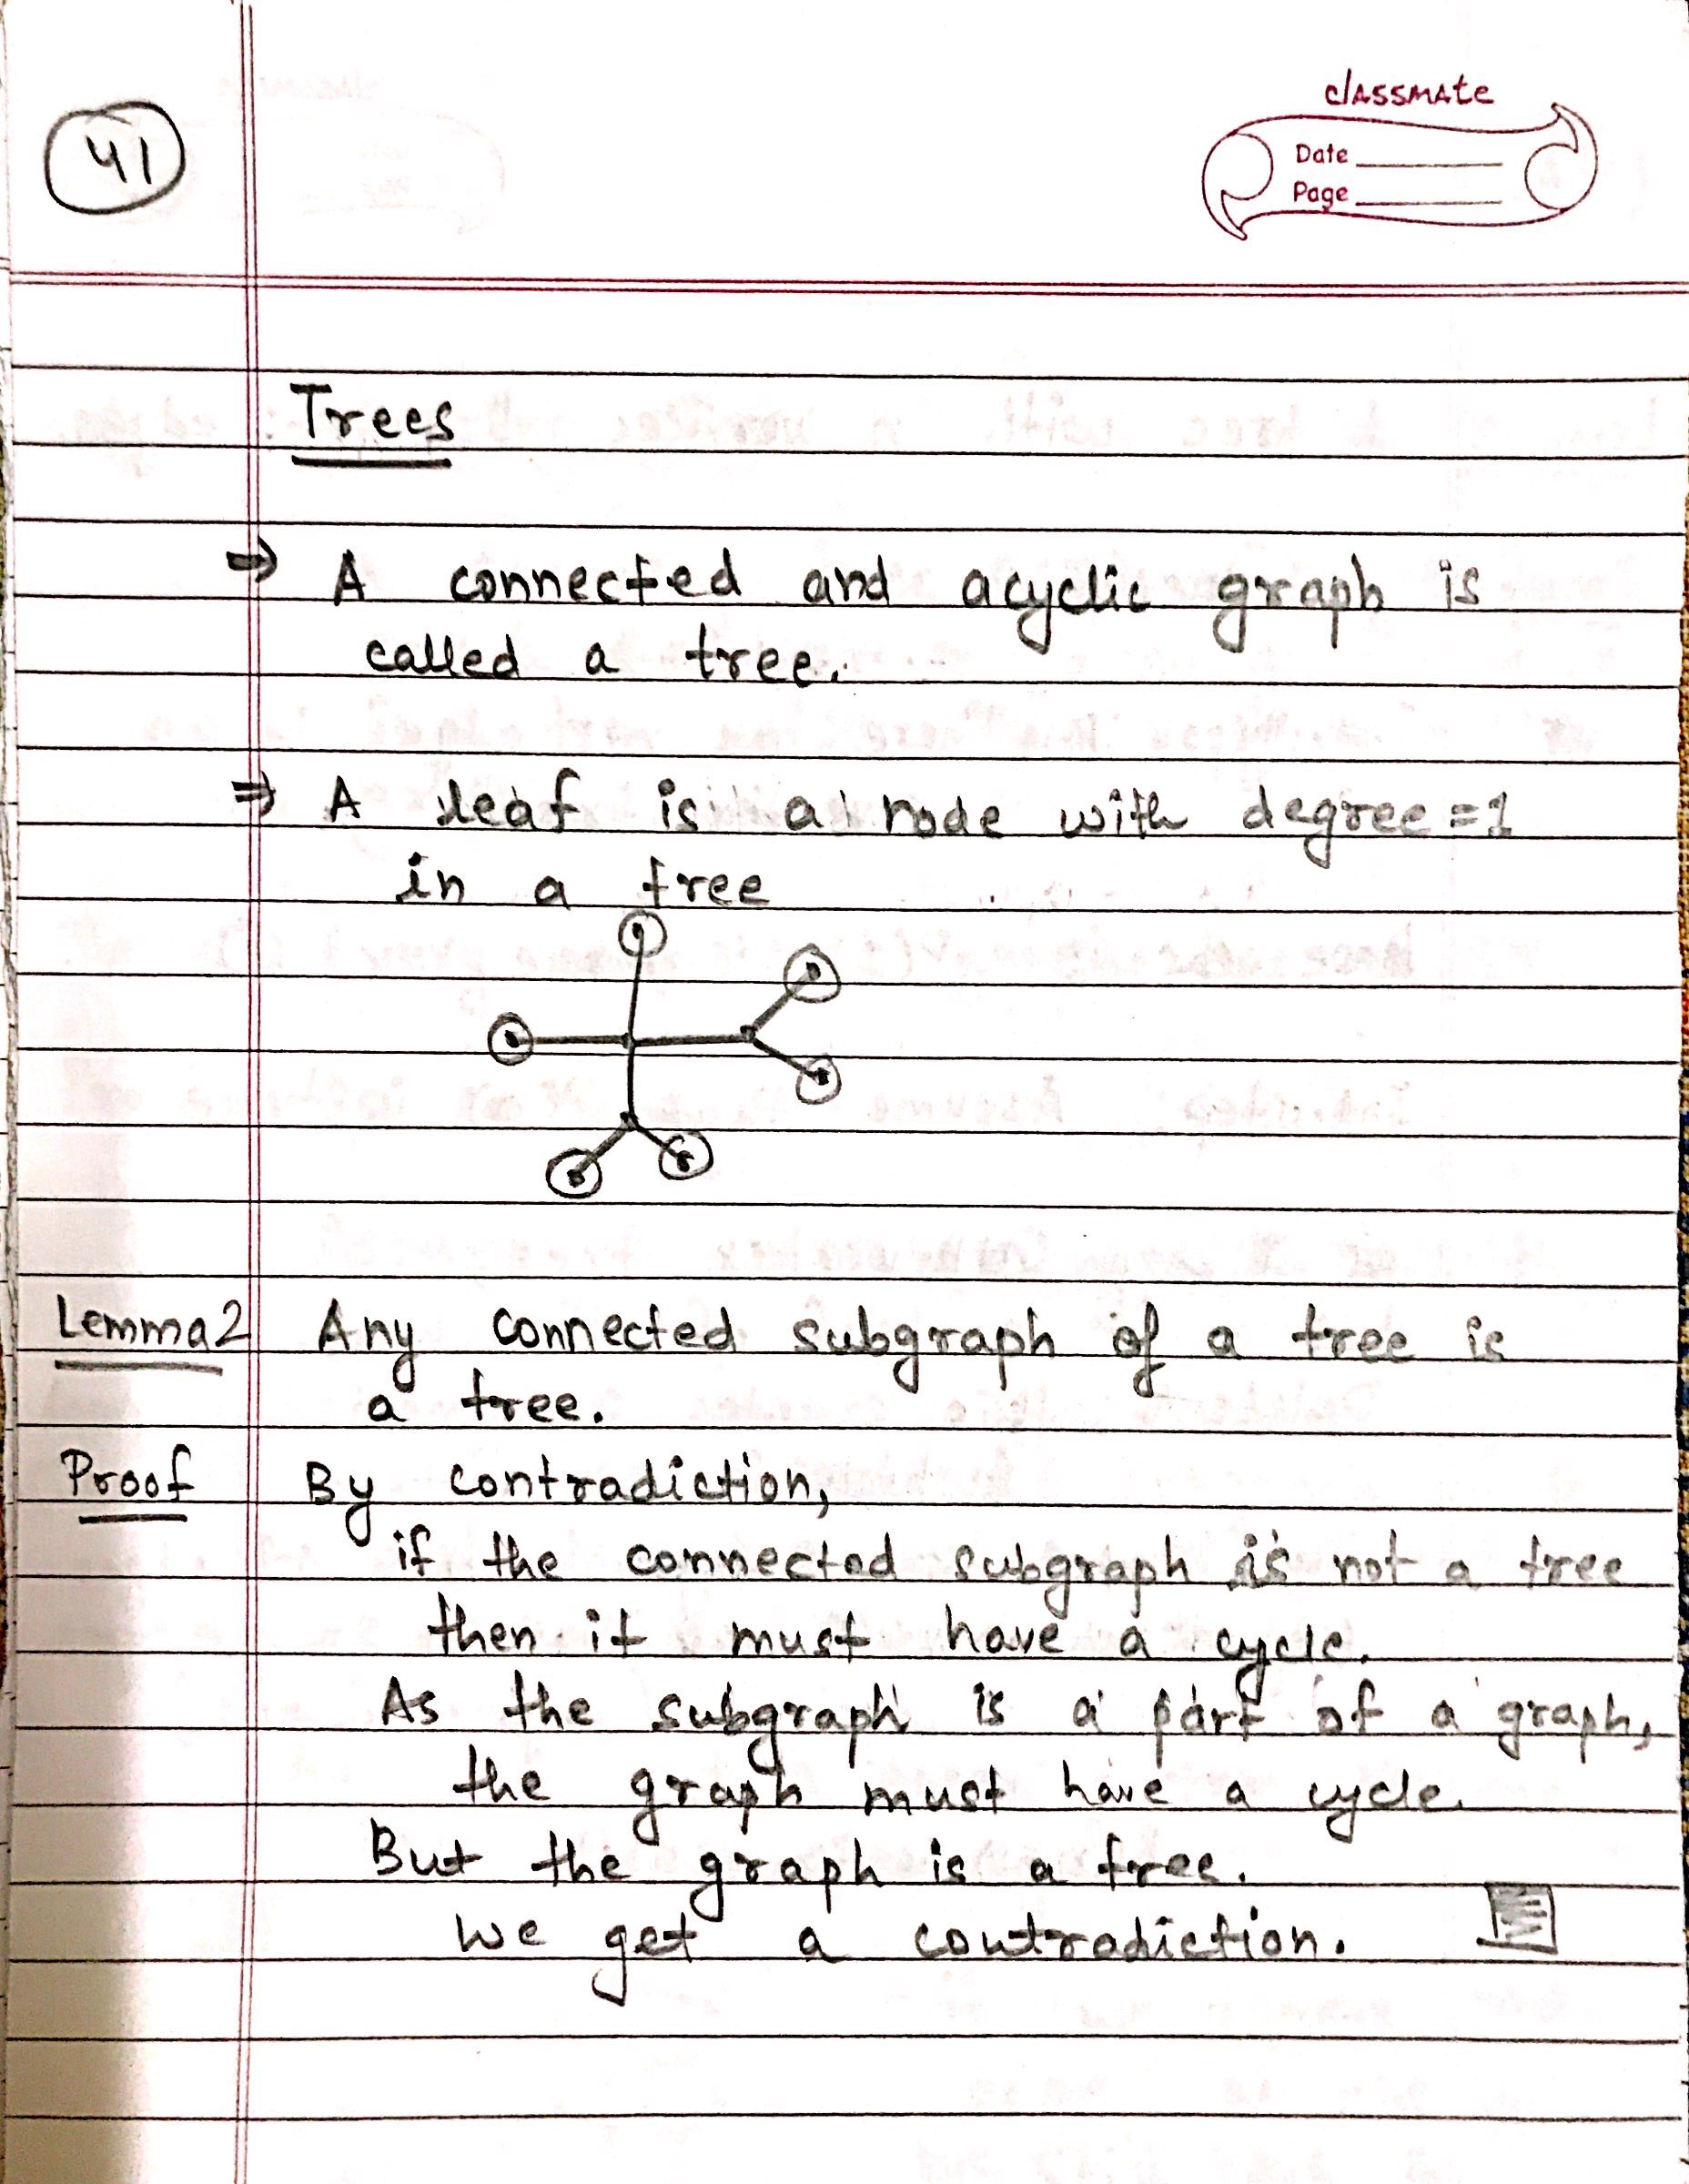 41
classmate
Date
Page
Trees
⇒ A connected and acyclic graph is
called a tree.
⇒ A leaf is a node with degree = 1
in a tree
Lemma 2 Any connected subgraph of a tree is
a tree.
Proof By contradiction,
if the connected subgraph is not a tree
then it must have a cycle.
As the subgraph is a part of a graph,
the graph must have a cycle.
But the graph is a tree.
we get a contradiction.